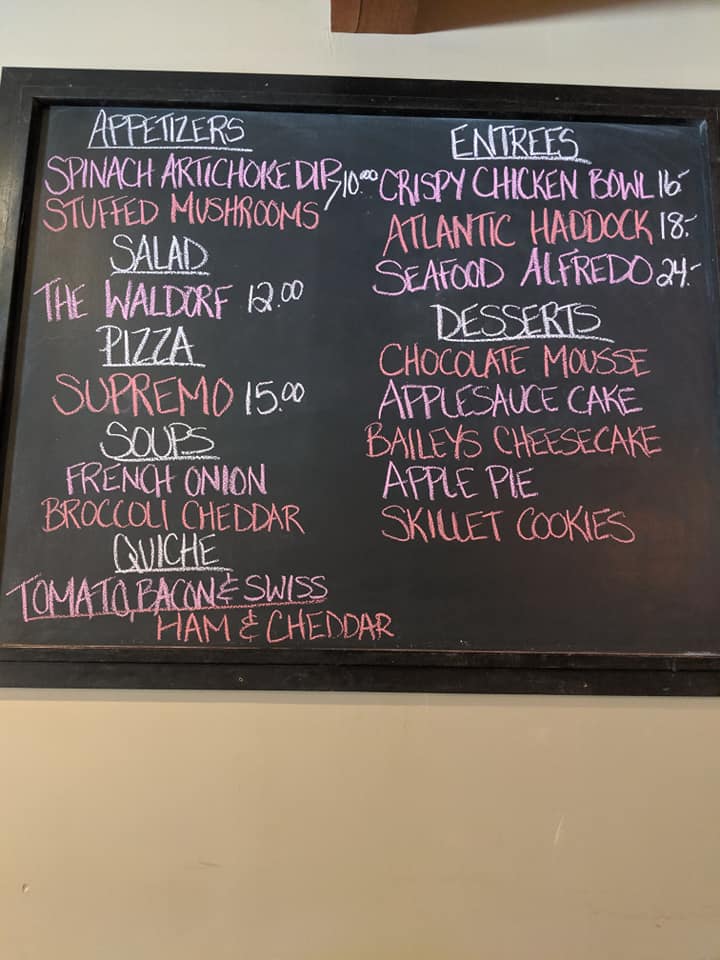 APPETIZERS
SPINACH ARTICHOKE DIP 10.00
STUFFED MUSHROOMS
SALAD
THE WALDORF 12.00
PIZZA
SUPREMO 15.00
SOUPS
FRENCH ONION
BROCCOLI CHEDDAR
QUICHE
TOMATO, BACON & SWISS
HAM & CHEDDAR
ENTREES
CRISPY CHICKEN BOWL 16.-
ATLANTIC HADDOCK 18.-
SEAFOOD ALFREDO 24.-
DESSERTS
CHOCOLATE MOUSSE
APPLESAUCE CAKE
BAILEYS CHEESECAKE
APPLE PIE
SKILLET COOKIES